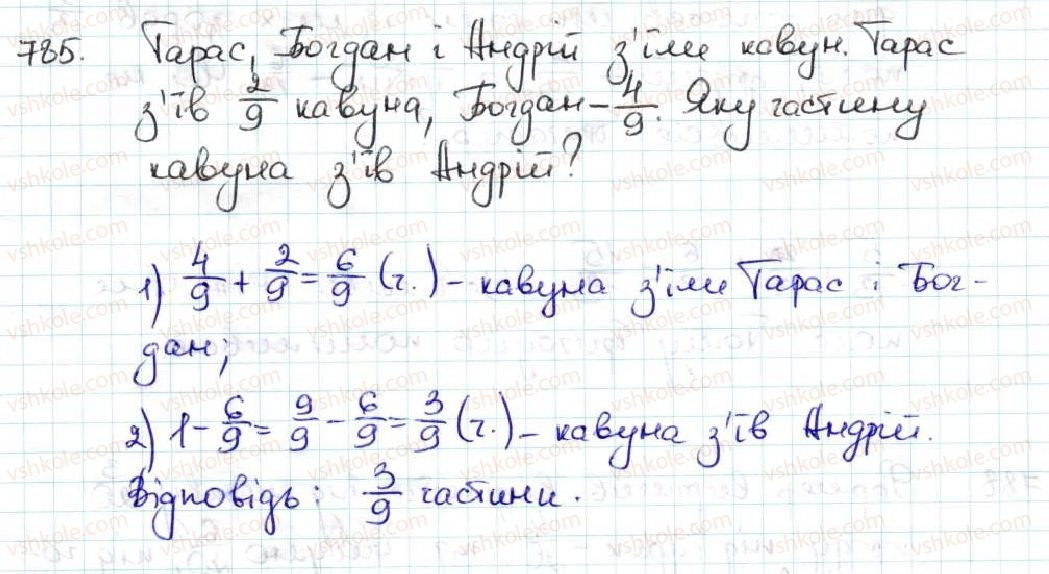 785. Тарас, Богдан і Андрій з'їли кавун. Тарас
з'їв 2/9 кавуна, Богдан – 4/9. Яку частину
кавуна з'їв Андрій?
1) 4/9 + 2/9 = 6/9 (ч.) – кавуна з'їли Тарас і Бог-
дан;
2) 1 – 6/9 = 9/9 – 6/9 = 3/9 (ч.) – кавуна з'їв Андрій.
Відповідь: 3/9 частини.